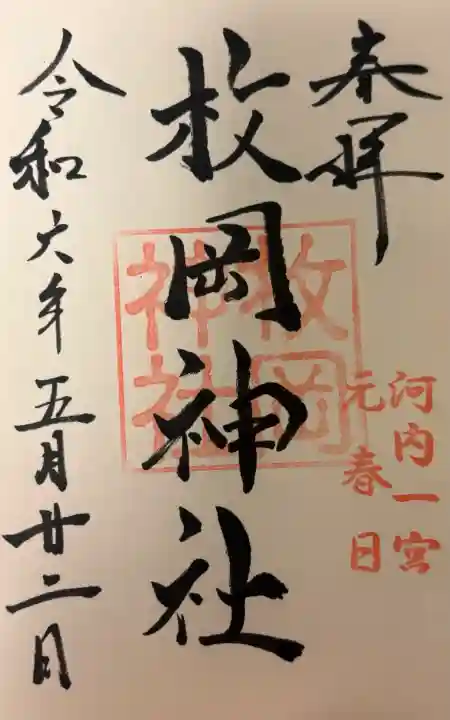 奉拝
河内一宮
元春日
枚岡神社
枚岡
神社
令和六年五月廿二日